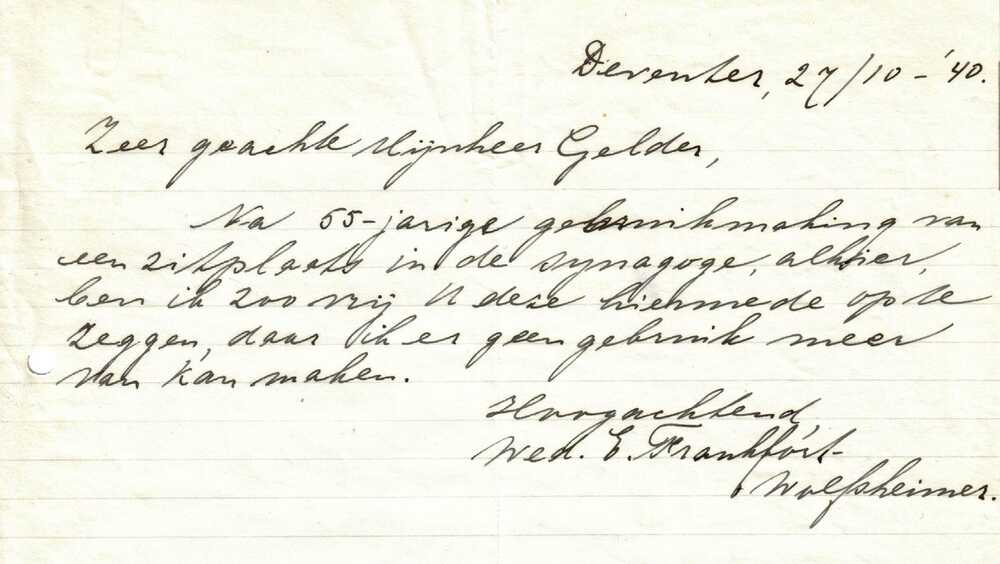 Deventer, 27/10-'40.
Zeer geachte Mijnheer Gelder,
Na 55-jarige gebruikmaking van
een zitplaats in de synagoge, alhier,
ben ik zoo vrij U deze hiermede op te
zeggen, daar ik er geen gebruik meer
van kan maken.
Hoogachtend
Wed. E. Frankfort-
Wolfsheimer.